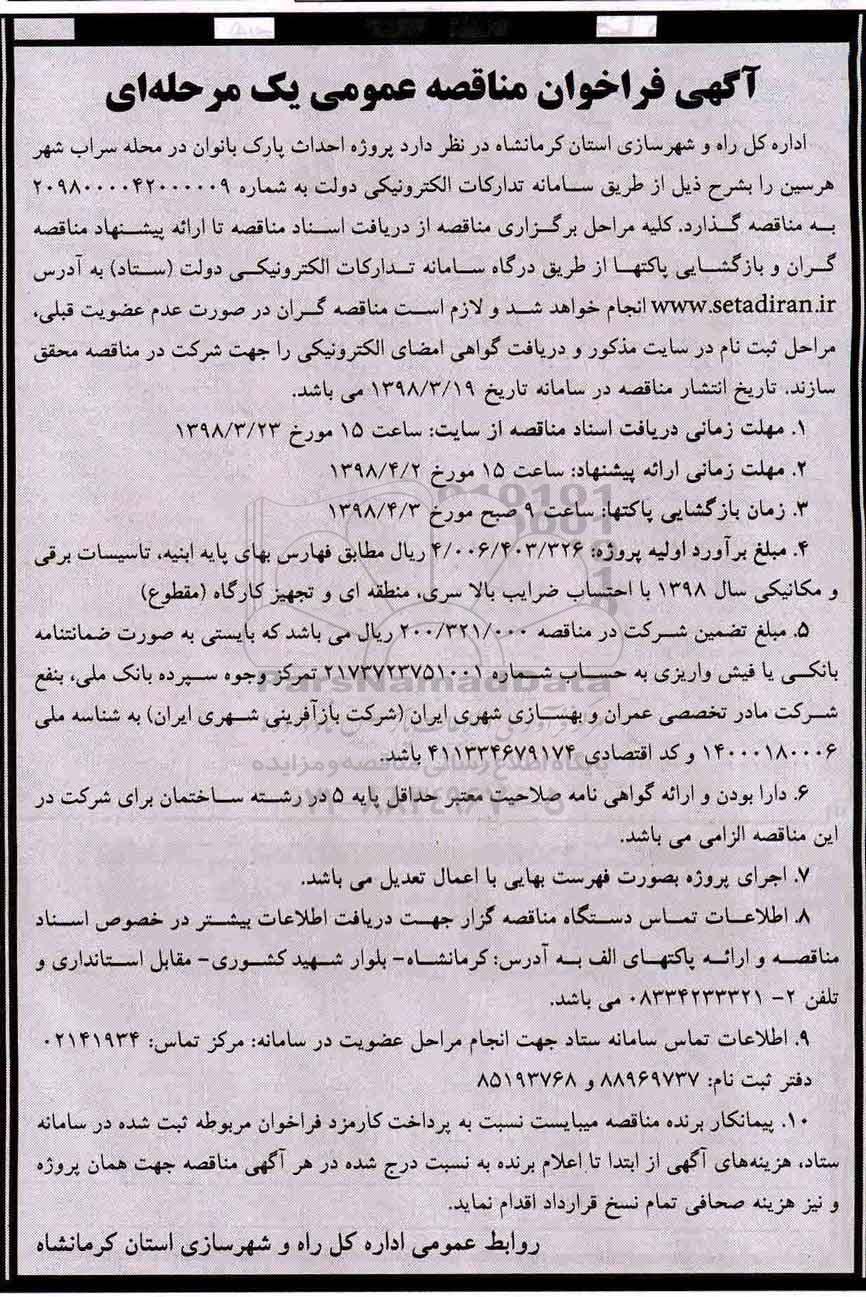 آگهی فراخوان مناقصه عمومی یک مرحله‌ای
اداره کل راه و شهرسازی استان کرمانشاه در نظر دارد پروژه احداث پارک بانوان در محله سراب شهر
هرسین را بشرح ذیل از طریق سـامانه تدارکات الکترونیکی دولت به شماره ۲۰۹۸۰۰۰۰۴۲۰۰۰۰۰۹
بـه مناقصه گـذارد. کلیه مراحل برگـزاری مناقصه از دریافت اسـناد مناقصه تا ارائه پیشـنهاد مناقصه
گـران و بازگشـایی پاکتهـا از طریق درگاه سـامانه تـدارکات الکترونیکـی دولت (سـتاد) به آدرس
www.setadiran.ir انجام خواهد شـد و لازم اسـت مناقصه گـران در صورت عدم عضویت قبلی،
مراحل ثبت نام در سایت مذکور و دریافت گواهی امضای الکترونیکی را جهت شرکت در مناقصه محقق
سازند. تاریخ انتشار مناقصه در سامانه تاریخ ۱۳۹۸/۳/۱۹ می باشد.
۱. مهلت زمانی دریافت اسناد مناقصه از سایت: ساعت ۱۵ مورخ ۱۳۹۸/۳/۲۳
۲. مهلت زمانی ارائه پیشنهاد: ساعت ۱۵ مورخ ۱۳۹۸/۴/۲
۳. زمان بازگشایی پاکتها: ساعت ۹ صبح مورخ ۱۳۹۸/۴/۳
۴. مبلغ برآورد اولیه پروژه: ۴/۰۰۶/۴۰۳/۳۲۶ ریال مطابق فهارس بهای پایه ابنیه، تاسیسات برقی
و مکانیکی سال ۱۳۹۸ با احتساب ضرایب بالا سری، منطقه ای و تجهیز کارگاه (مقطوع)
۵. مبلغ تضمین شـرکت در مناقصه ۲۰۰/۳۲۱/۰۰۰ ریال می باشد که بایستی به صورت ضمانتنامه
بانکـی یا فیش واریزی به حسـاب شـماره ۲۱۷۳۷۲۳۷۵۱۰۰۱ تمرکز وجوه سـپرده بانک ملی، بنفع
شـرکت مادر تخصصی عمران و بهسـازی شهری ایران (شرکت بازآفرینی شـهری ایران) به شناسه ملی
۱۴۰۰۰۱۸۰۰۰۶ و کد اقتصادی ۴۱۱۳۳۴۶۷۹۱۷۴ باشد.
۶. دارا بودن و ارائه گواهی نامه صلاحیت معتبر حداقل پایه ۵ در رشـته سـاختمان برای شرکت در
این مناقصه الزامی می باشد.
۷. اجرای پروژه بصورت فهرست بهایی با اعمال تعدیل می باشد.
۸. اطلاعـات تمـاس دسـتگاه مناقصه گزار جهـت دریافت اطلاعات بیشـتر در خصوص اسـناد
مناقصـه و ارائـه پاکتهـای الف بـه آدرس: کرمانشـاه- بلوار شـهید کشـوری- مقابل اسـتانداری و
تلفن ۲- ۰۸۳۳۴۲۳۳۳۲۱ می باشد.
۹. اطلاعات تماس سامانه ستاد جهت انجام مراحل عضویت در سامانه: مرکز تماس: ۰۲۱۴۱۹۳۴
دفتر ثبت نام: ۸۸۹۶۹۷۳۷ و ۸۵۱۹۳۷۶۸
۱۰. پیمانکار برنده مناقصه میبایست نسبت به پرداخت کارمزد فراخوان مربوطه ثبت شده در سامانه
ستاد، هزینه‌های آگهی از ابتدا تا اعلام برنده به نسبت درج شده در هر آگهی مناقصه جهت همان پروژه
و نیز هزینه صحافی تمام نسخ قرارداد اقدام نماید.
روابط عمومی اداره کل راه و شهرسازی استان کرمانشاه
ParsNamadData
پایگاه اطلاع رسانی مناقصه و مزایده